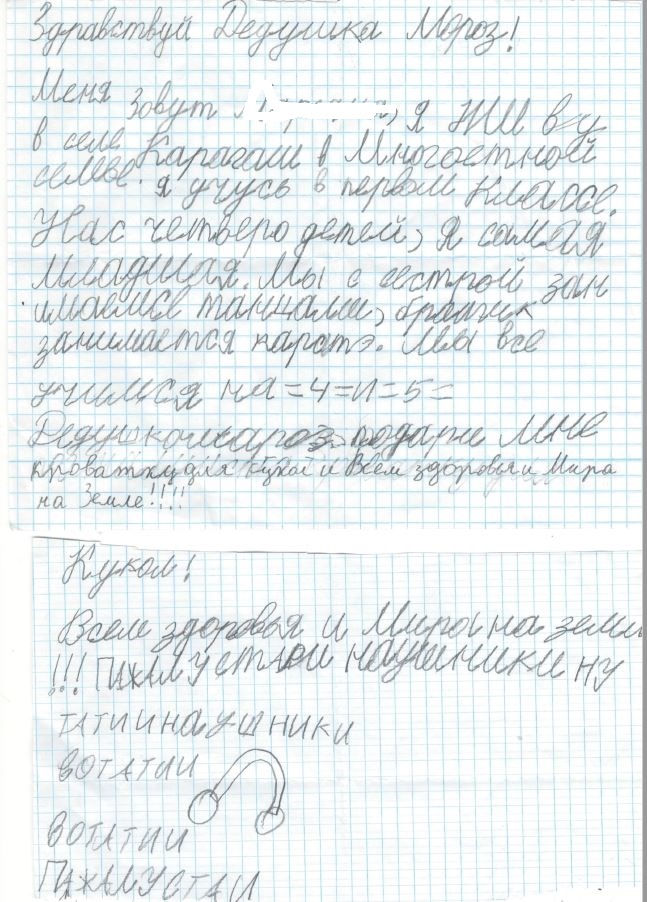 Здравствуй Дедушка Мороз!
Меня зовут я живу
в селе Карагаш в Многоетной
семье. я учусь в первом классе.
Нас четверо детей, я самая
младшая. Мы с сестрой зан
имаемся танцами, братик
занимается каратэ. Мы все
учимся на =4=и=5=
Дедушкомароз подари мне
кроватку для кукол и Всем здоровья и Мира
на Земле!!!!
Кукол!
Всем здоровья и Мира на земле
!!! ПАЖАЛУСТА И наушники НУ
ТАТИИ НАУШНИКИ
ВОТАТИИ
ВОТАТИИ
ПАЖАЛУСТАИ